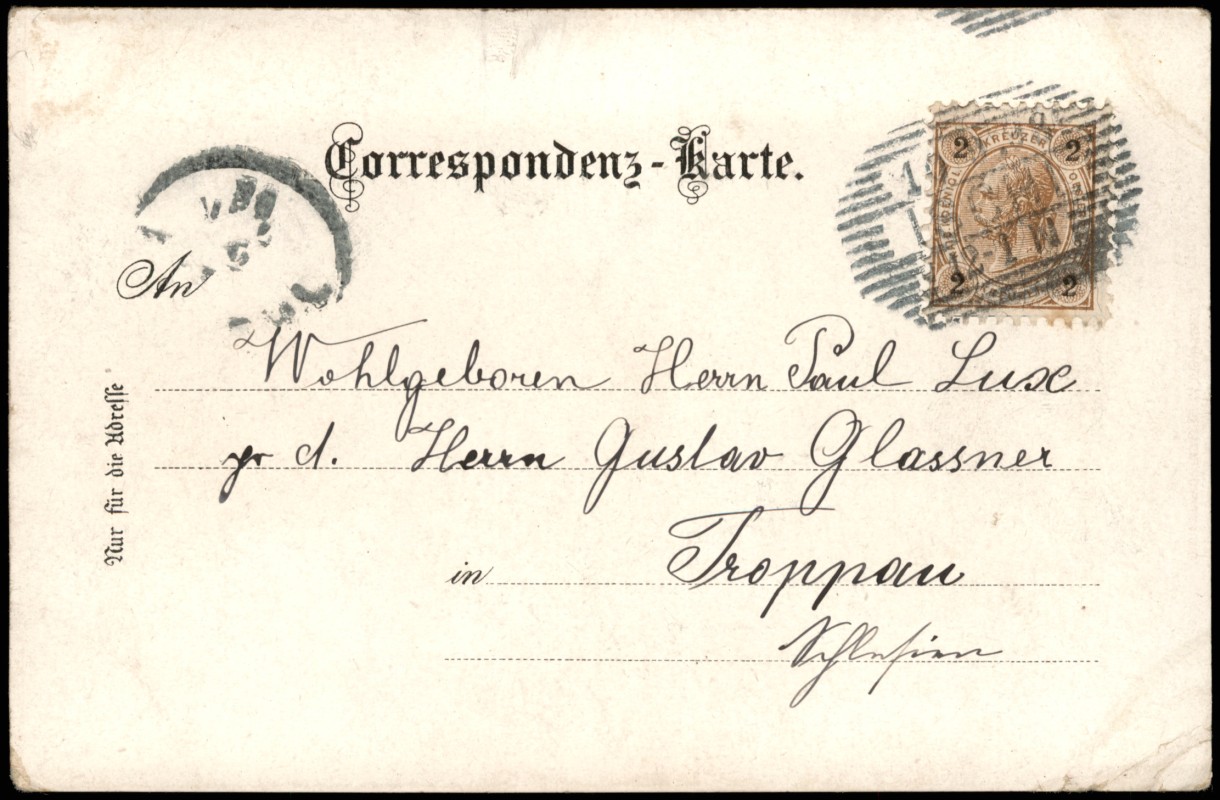 Correspondenz-Karte.
2 KREUZER 2
2 2
An
Wohlgeboren Herrn Paul Lux
pr d. Herrn Gustav Glassner
in Troppau
Schlesien
Nur für die Adresse